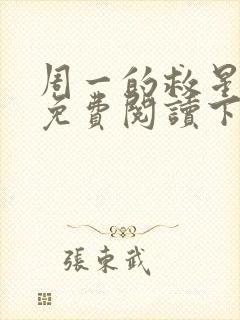 周一的救星
免費閱讀下
張東武